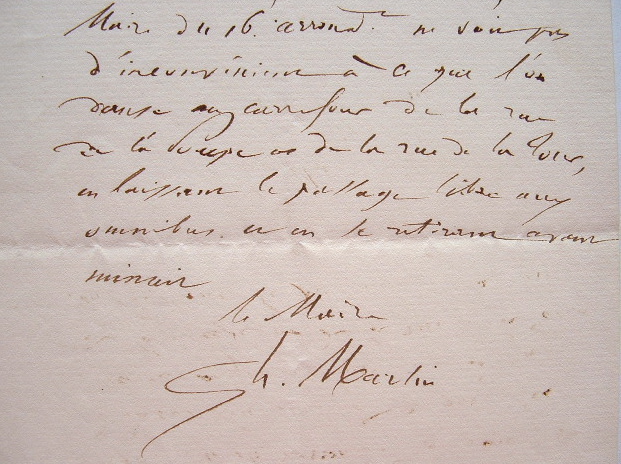 Maire du 16e arrondt ne voit pas
d'inconvénient à ce que l'on
danse au carrefour de la rue
de la Pompe et de la rue de la Tour,
en laissant le passage libre aux
omnibus et en se retirant avant
minuit
le Maire
Ch. Martin